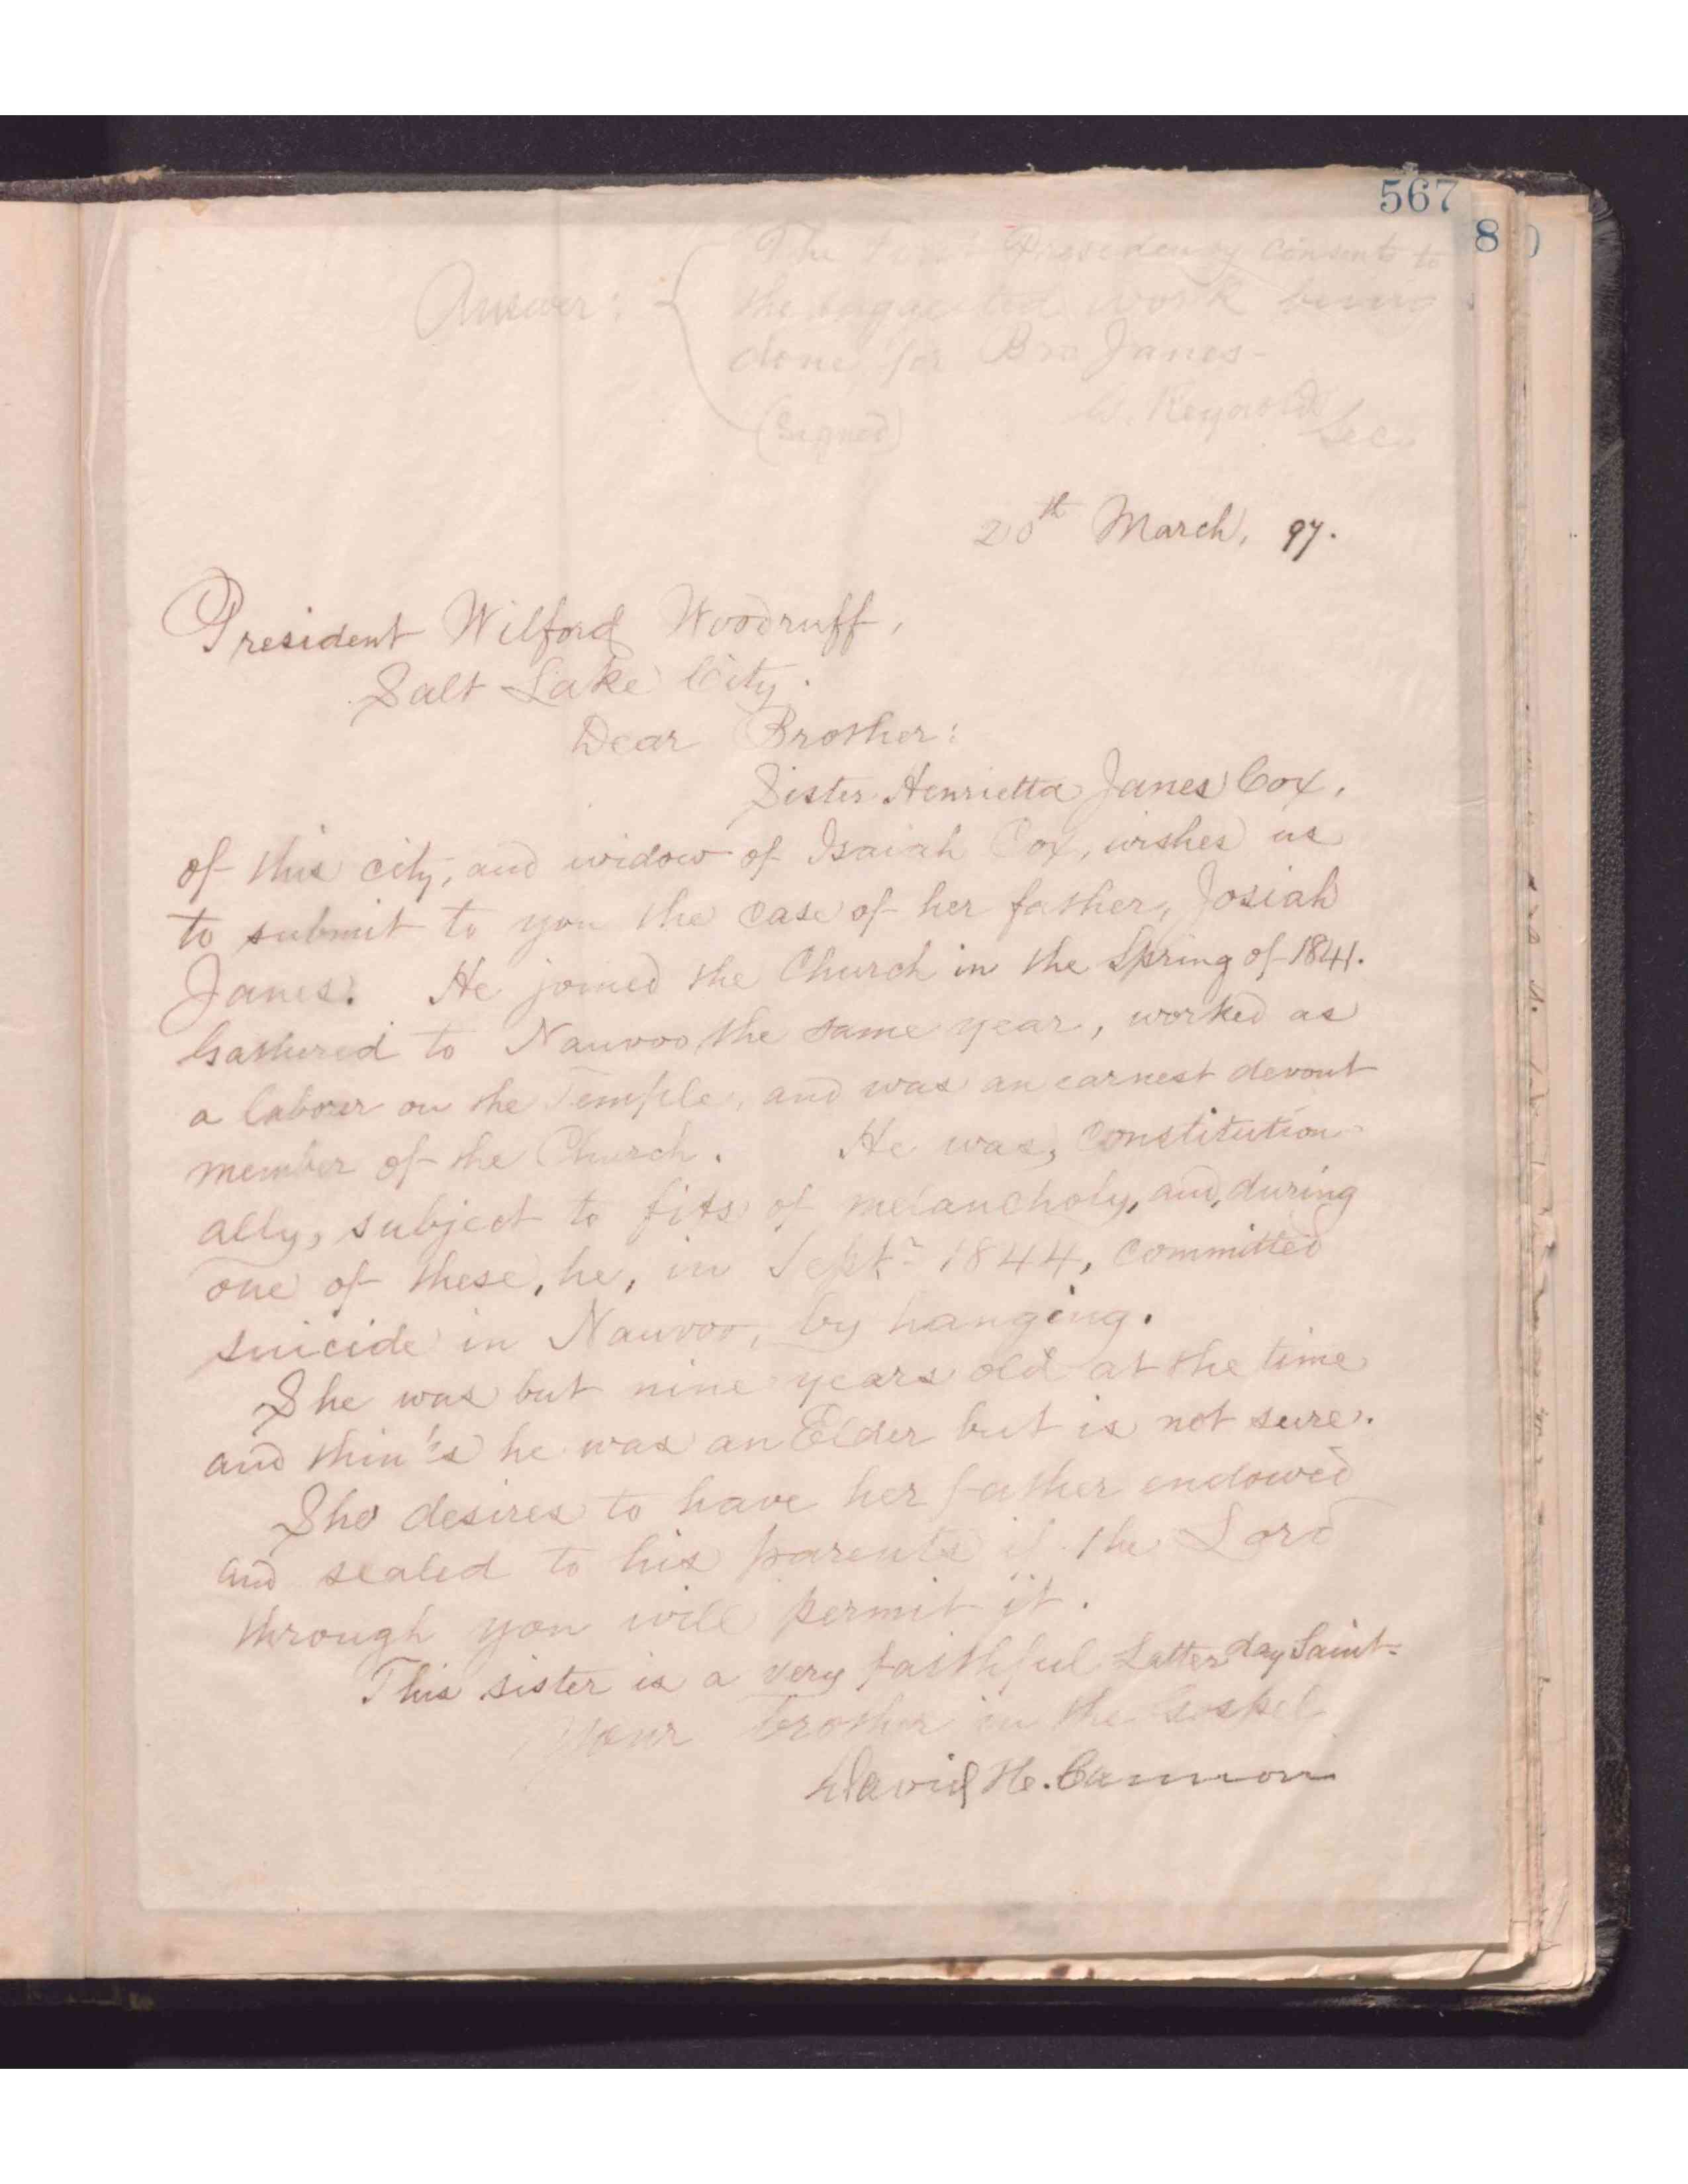 567
8
Answer: { The First Presidency consents to
the suggested work being
done for Bro Janes-
(Signed) G. Reynolds
Sec.
20th March, 97.
President Wilford Woodruff,
Salt Lake City.
Dear Brother:
Sister Henrietta Janes Cox,
of this city, and widow of Isaiah Cox, wishes us
to submit to you the case of her father, Josiah
Janes. He joined the Church in the Spring of 1841.
Gathered to Nauvoo the same year, worked as
a laborer on the Temple, and was an earnest devout
member of the Church. He was, constitution-
ally, subject to fits of melancholy, and, during
one of these, he, in Sept- 1844, committed
suicide in Nauvoo, by hanging.
She was but nine years old at the time
and thinks he was an Elder but is not sure.
She desires to have her father endowed
and sealed to his parents if the Lord
through you will permit it.
This sister is a very faithful Latter day Saint-
Your brother in the Gospel
David H. Cannon